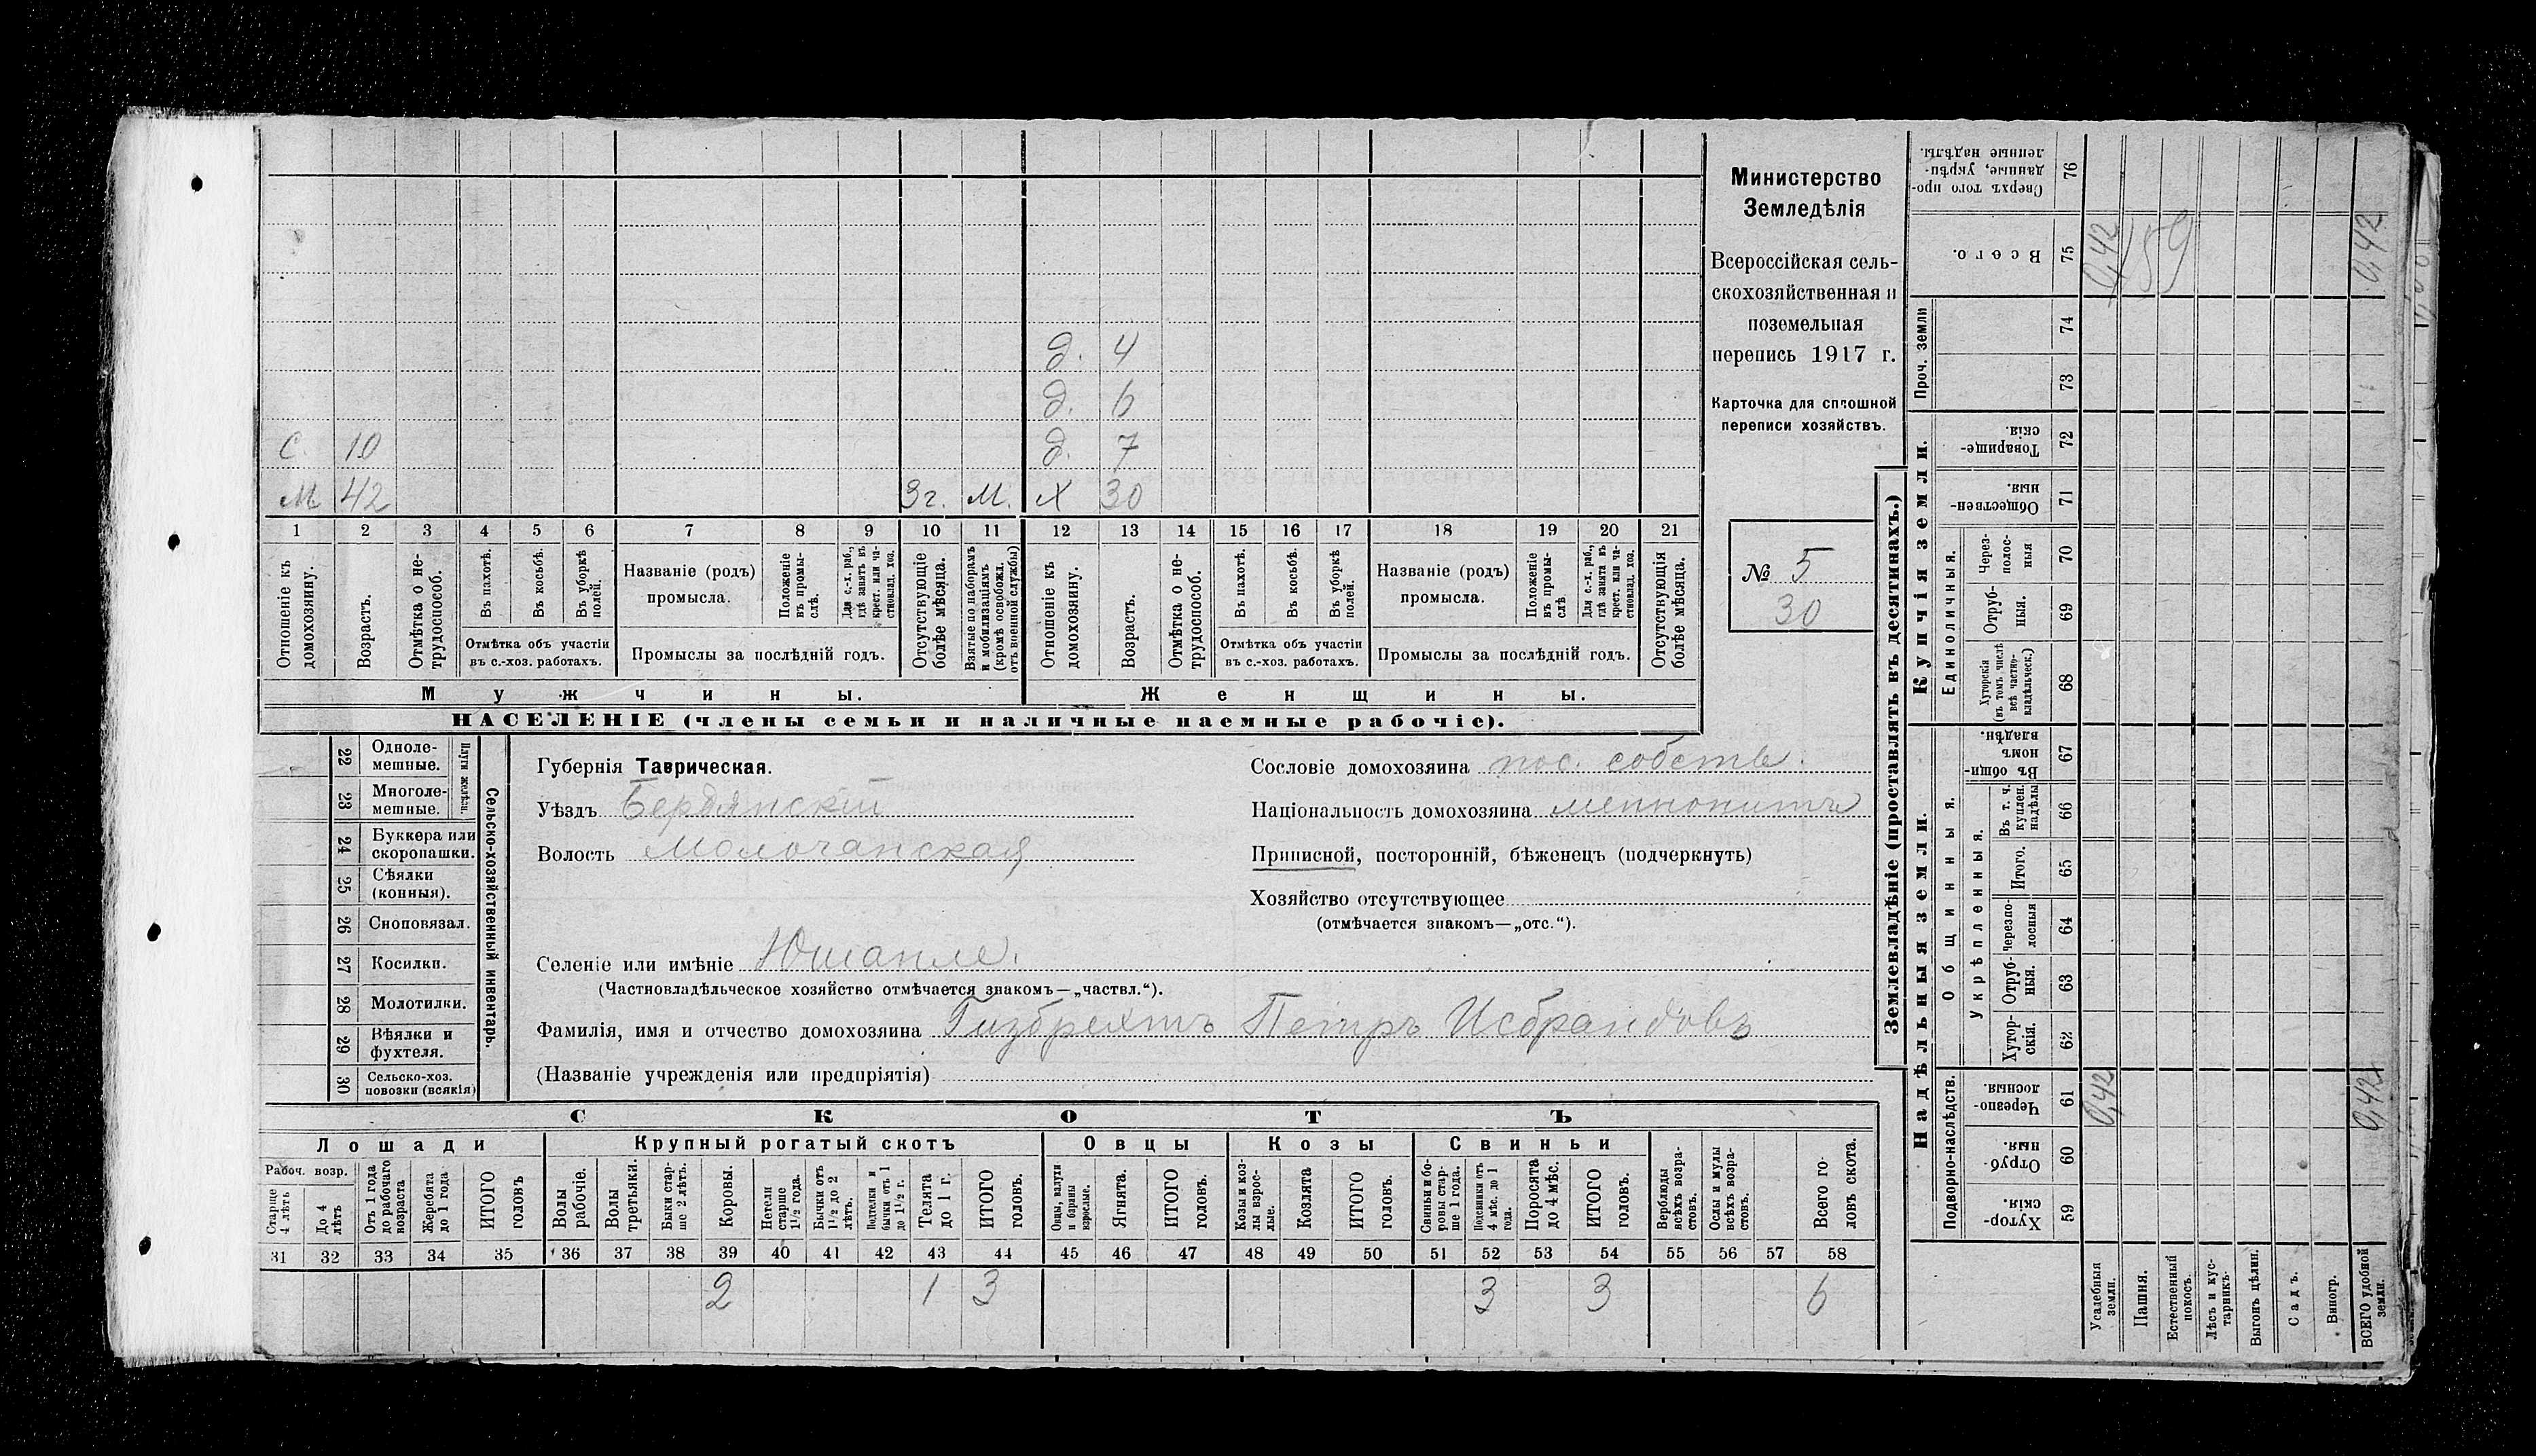 д. 4
д. 6
с. 10 д. 7
м 42 3 г. м. х 30
1 2 3 4 5 6 7 8 9 10 11 12 13 14 15 16 17 18 19 20 21
Отношеніе къ домохозяину.
Возрастъ.
Отмѣтка о не-трудоспособ.
Въ пахотѣ.
Въ косьбѣ.
Въ уборкѣ полей.
Отмѣтка объ участіи
въ с.-хоз. работахъ.
Названіе (родъ)
промысла.
Положеніе въ промы-слѣ.
Для с.-х. раб., гдѣ занятъ въ крест. или ча-стновлад. хоз.
Промыслы за послѣдній годъ.
Отсутствующіе болѣе мѣсяца.
Взятые по наборамъ и мобилизаціямъ (кромѣ освобожд. отъ военной службы)
Отношеніе къ домохозяину.
Возрастъ.
Отмѣтка о не-трудоспособ.
Въ пахотѣ.
Въ косьбѣ.
Въ уборкѣ полей.
Отмѣтка объ участіи
въ с.-хоз. работахъ.
Названіе (родъ)
промысла.
Положеніе въ промы-слѣ
Для с.-х. раб., гдѣ занята въ крест. или ча-стновлад. хоз.
Промыслы за послѣдній годъ.
Отсутствующія болѣе мѣсяца.
Мужчины.
Женщины.
НАСЕЛЕНІЕ (члены семьи и наличные наемные рабочіе).
Министерство
Земледѣлія
Всероссійская сель-
скохозяйственная и
поземельная
перепись 1917 г.
Карточка для сплошной
переписи хозяйствъ.
№ 5
30
22 Одноле-мешные.
23 Многоле-мешные.
Плуги желѣзн.
24 Буккера или скоропашки.
25 Сѣялки (конныя).
26 Сноповязал.
27 Косилки.
28 Молотилки.
29 Вѣялки и фухтеля.
30 Сельско-хоз. повозки (всякія)
Сельско-хозяйственный инвентарь.
Губернія Таврическая.
Уѣздъ Бердянскій
Волость Молочанская
Сословіе домохозяина пос. собств.
Національность домохозяина меннонитъ
Приписной, посторонній, бѣженецъ (подчеркнуть)
Хозяйство отсутствующее
(отмѣчается знакомъ—„отс.“).
Селеніе или имѣніе Юшанле.
(Частновладѣльческое хозяйство отмѣчается знакомъ—„частвл.“).
Фамилія, имя и отчество домохозяина Гизбрехтъ Петръ Исбрандовъ
(Названіе учрежденія или предпріятія)
СКОТЪ
Лошади
Крупный рогатый скотъ
Овцы
Козы
Свиньи
Рабоч. возр.
Старше 4 лѣтъ
До 4 лѣтъ
Отъ 1 года до рабочаго возраста
Жеребята до 1 года
ИТОГО головъ
Волы рабочіе.
Волы третьяки.
Быки стар-ше 2 лѣтъ.
Коровы.
Нетели старше 1½ года.
Бычки отъ 1½ до 2 лѣтъ.
Подтелки и бычки отъ 1 до 1½ г.
Телята до 1 г.
ИТОГО головъ.
Овцы, валухи и бараны взрослые.
Ягнята.
ИТОГО головъ.
Козы и коз-лы взрос-лые.
Козлята
ИТОГО головъ.
Свиньи и бо-ровы стар-ше 1 года.
Подсвинки отъ 4 мѣс. до 1 года.
Поросята до 4 мѣс.
ИТОГО головъ.
Верблюды всѣхъ возра-стовъ.
Ослы и мулы всѣхъ возра-стовъ.
Всего го-ловъ скота.
31 32 33 34 35 36 37 38 39 40 41 42 43 44 45 46 47 48 49 50 51 52 53 54 55 56 57 58
2 1 3 3 3 6
Землевладѣніе (проставлять въ десятинахъ.)
Купчія земли.
Надѣльныя земли.
Сверхъ того про-данные, укрѣп-ленные надѣлы. 76
Всего. 75 0,42 159 0,42
Проч. земли
74
73
Товарище-скія. 72
Обществен-ныя. 71
Единоличныя.
Через-полос-ныя 70
Отруб-ныя. 69
Хуторскія (въ томъ числѣ всѣ частно-владѣльческ.) 68
Общинныя.
Въ общин-номъ владѣн. 67
Укрѣпленныя.
Въ т. ч. куплен. надѣлы 66
Итого. 65
Черезпо-лосныя 64
Отруб-ныя. 63
Хутор-скія. 62
Подворно-наслѣдств.
Черезпо-лосныя. 61 0,42 0,42
Отруб-ныя. 60
Хутор-скія. 59
Усадебныя земли.
Пашня.
Естественный покосъ.
Лѣсъ и кус-тарникъ.
Выгонъ цѣлин.
Садъ.
Виногр.
ВСЕГО удобной земли.